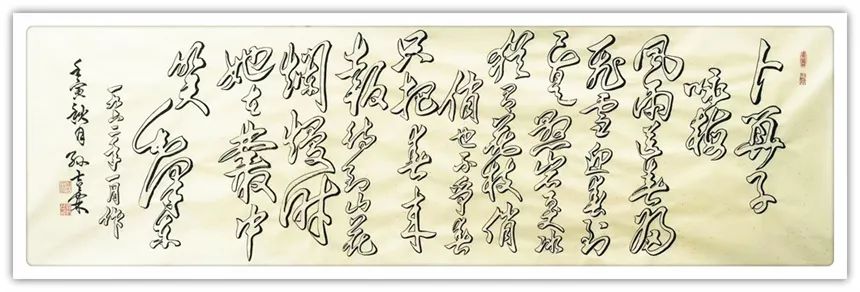 卜算子
咏梅
风雨送春归
飞雪迎春到
已是悬岩百丈冰
犹有花枝俏
俏也不争春
只把春来
報待到山花
爛熳时
她在叢中
笑毛泽东
一九六
月作
壬寅秋月孙吉